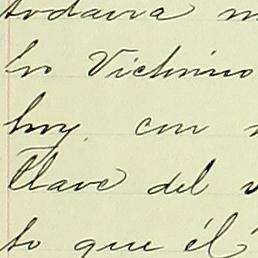 todavia
ho Victorino
hoy. con
Clave del
to que él